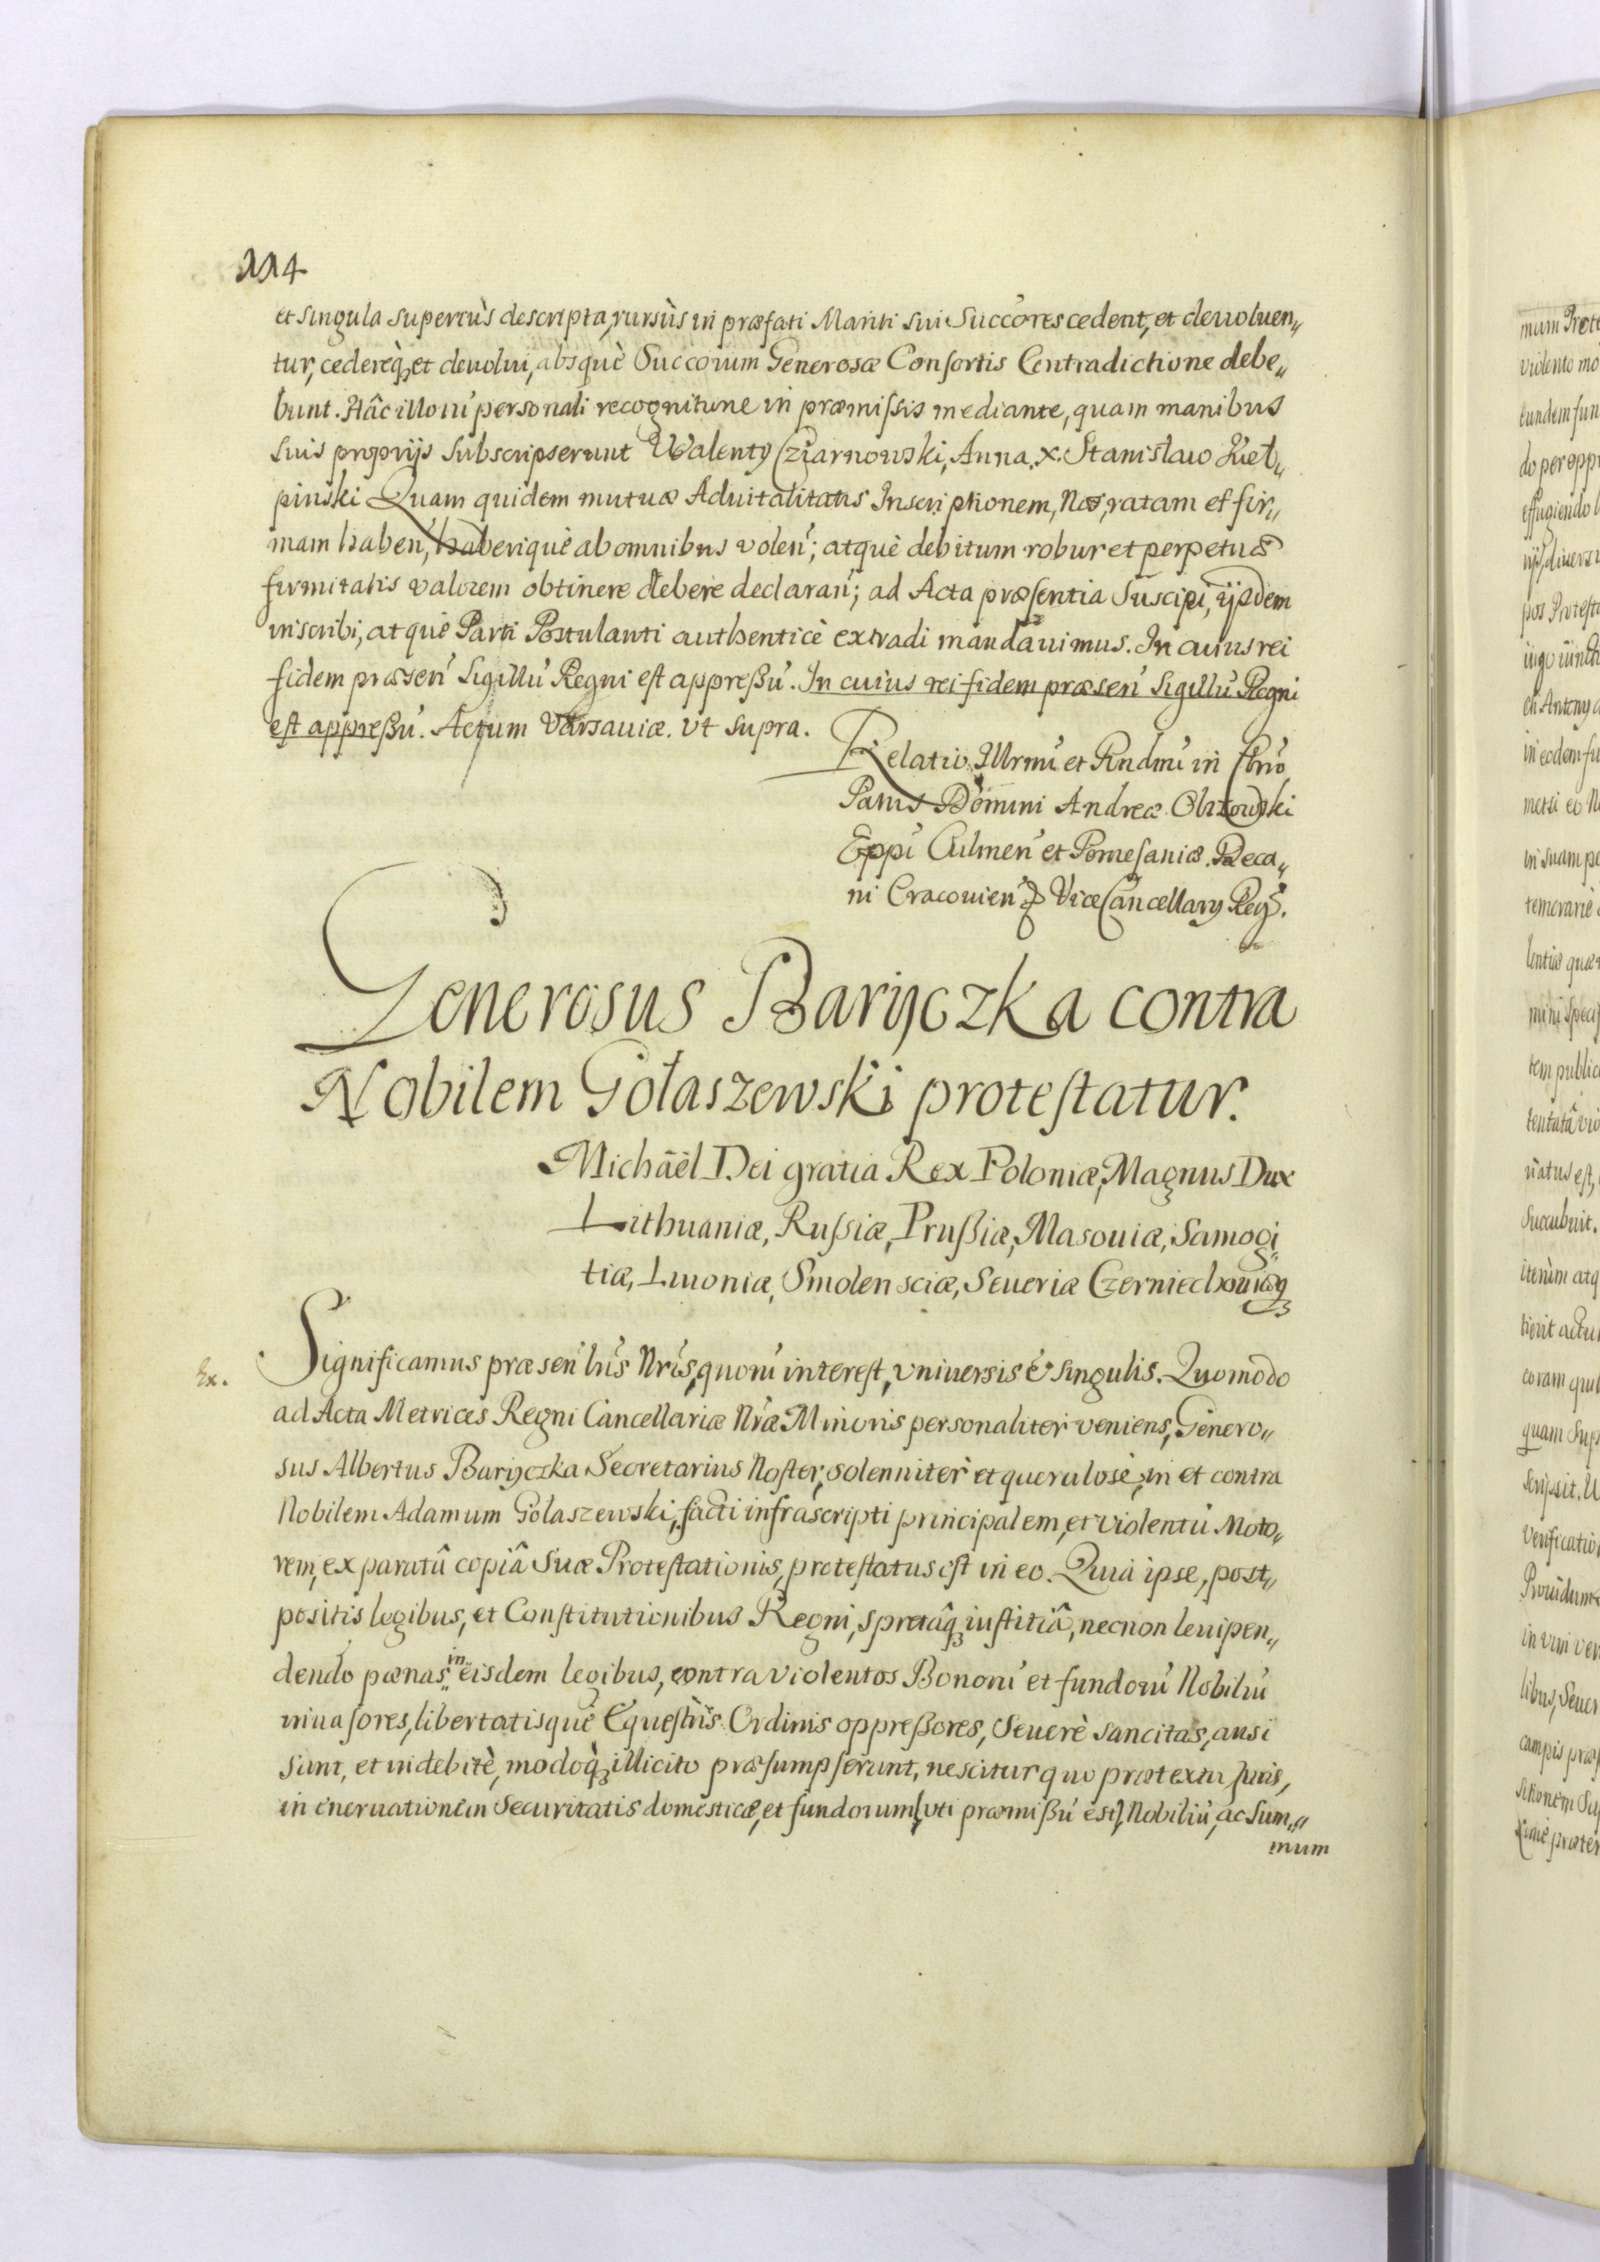 114
et singula superiùs descripta, rursùs in præfati Mariti sui Succores cedent, et deuoluen„
tur, cedereq̃, et deuolui, absquè Succorum Generosæ Consortis Contradictione debe„
bunt. Hâc illorũ personali recognitione in præmissis mediante, quam manibus
suis proprijs subscripserunt Walenty Cziarnowski, Anna. x. Stanislao Kieł„
pinski Quam quidem mutuæ Aduitalitatis Inscriptionem, Nos, ratam et fir„
mam haben̄, haberiquè ab omnibus volen̄; atquè debitum robur et perpetuæ
firmitatis valorem obtinere debere declaran̄; ad Acta præsentia Suscipi, ijsdem
inscribi, atquè Parti Postulanti authenticè extradi mandauimus. In cuius rei
fidem præsen̄ Sigillũ Regni est appreßũ. In cuius rei fidem præsen̄ Sigillũ Regni
est appreßũ. Actum Varsauiæ. vt supra.
Relatio Illrmi et Rndmi in Chrõ
Patris Domini Andreæ Olszowski
Eppi Culmen̄ et Pomesaniæ. Deca„
ni Cracouien̄ & ViceCancellarij Regñ.
Generosus Baryczka contra
Nobilem Gołaszewski protestatur.
Michäēl Dei gratia Rex Poloniæ, Magnus Dux
Lithuaniæ, Rußiæ, Prußiæ, Masouiæ, Samogi„
tiæ, Liuoniæ, Smolensciæ, Seueriæ Czerniechouiæq̃
Ex.
Significamus præsen̄ lrĩs Nrĩs, quorũ interest, vniuersis & singulis. Quomodo
ad Acta Metrices Regni Cancellariæ Nræ Minoris personaliter veniens, Genero„
sus Albertus Baryczka Secretarius Noster, solenniter et querulosè, in et contra
Nobilem Adamum Gołaszewski, facti infrascripti principalem, et violentũ Moto„
rem, ex paratâ copiâ Suæ Protestationis, protestatus est in eo. Quia ipse, post„
positis legibus, et Constitutionibus Regni, spretâq̃ iustitiâ, necnon leuipen„
dendo pœnas in eisdem legibus, contra violentos Bonorũ et fundorũ Nobiliũ
inuasores, libertatisquè Equestris Ordinis oppreßores, Seuerè sancitas, ausi
sunt, et indebitè, modoq̃ illicito præsumpserunt, nescitur quo prætextu Iuris,
in eneruationem Securitatis domesticæ, et fundorum [vti præmißũ est] Nobiliũ, ac Sum„
mum